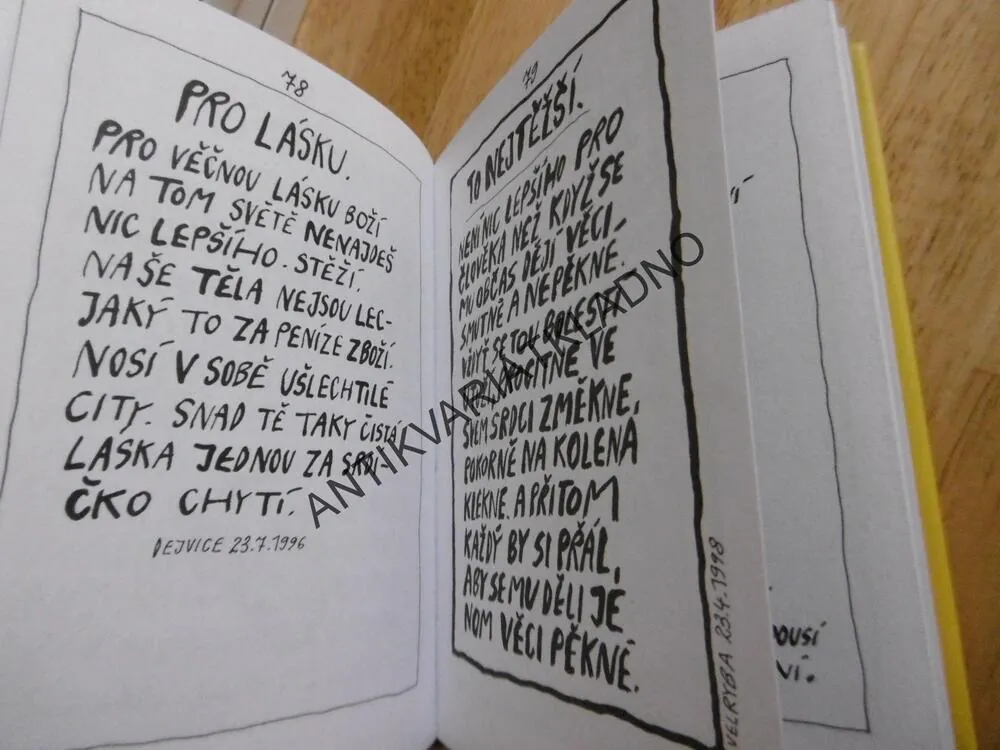 78
PRO LÁSKU.
PRO VĚČNOU LÁSKU BOŽÍ
NA TOM SVĚTĚ NENAJDEŠ
NIC LEPŠÍHO. STĚŽÍ.
NAŠE TĚLA NEJSOU LEC-
JAKÝ TO ZA PENÍZE ZBOŽÍ.
NOSÍ V SOBĚ UŠLECHTILÉ
CITY. SNAD TĚ TAKY ČISTÁ
LÁSKA JEDNOU ZA SRDÍ-
ČKO CHYTÍ.
DEJVICE 23.7.1996
79
TO NEJTĚŽŠÍ.
NENÍ NIC LEPŠÍHO PRO
ČLOVĚKA NEŽ KDYŽ SE
MU OBČAS DĚJÍ VĚCI-
SMUTNÉ A NEPĚKNÉ.
VŽDYŤ SE TOU BOLESTÍ
OCITNE VE
SVÉM SRDCI ZMĚKNE,
POKORNĚ NA KOLENA
KLEKNE. A PŘITOM
KAŽDÝ BY SI PŘÁL,
ABY SE MU DĚLI JE
NOM VĚCI PĚKNÉ.
VELRYBA 23.4.1998
ANTIKVARIATKLADNO